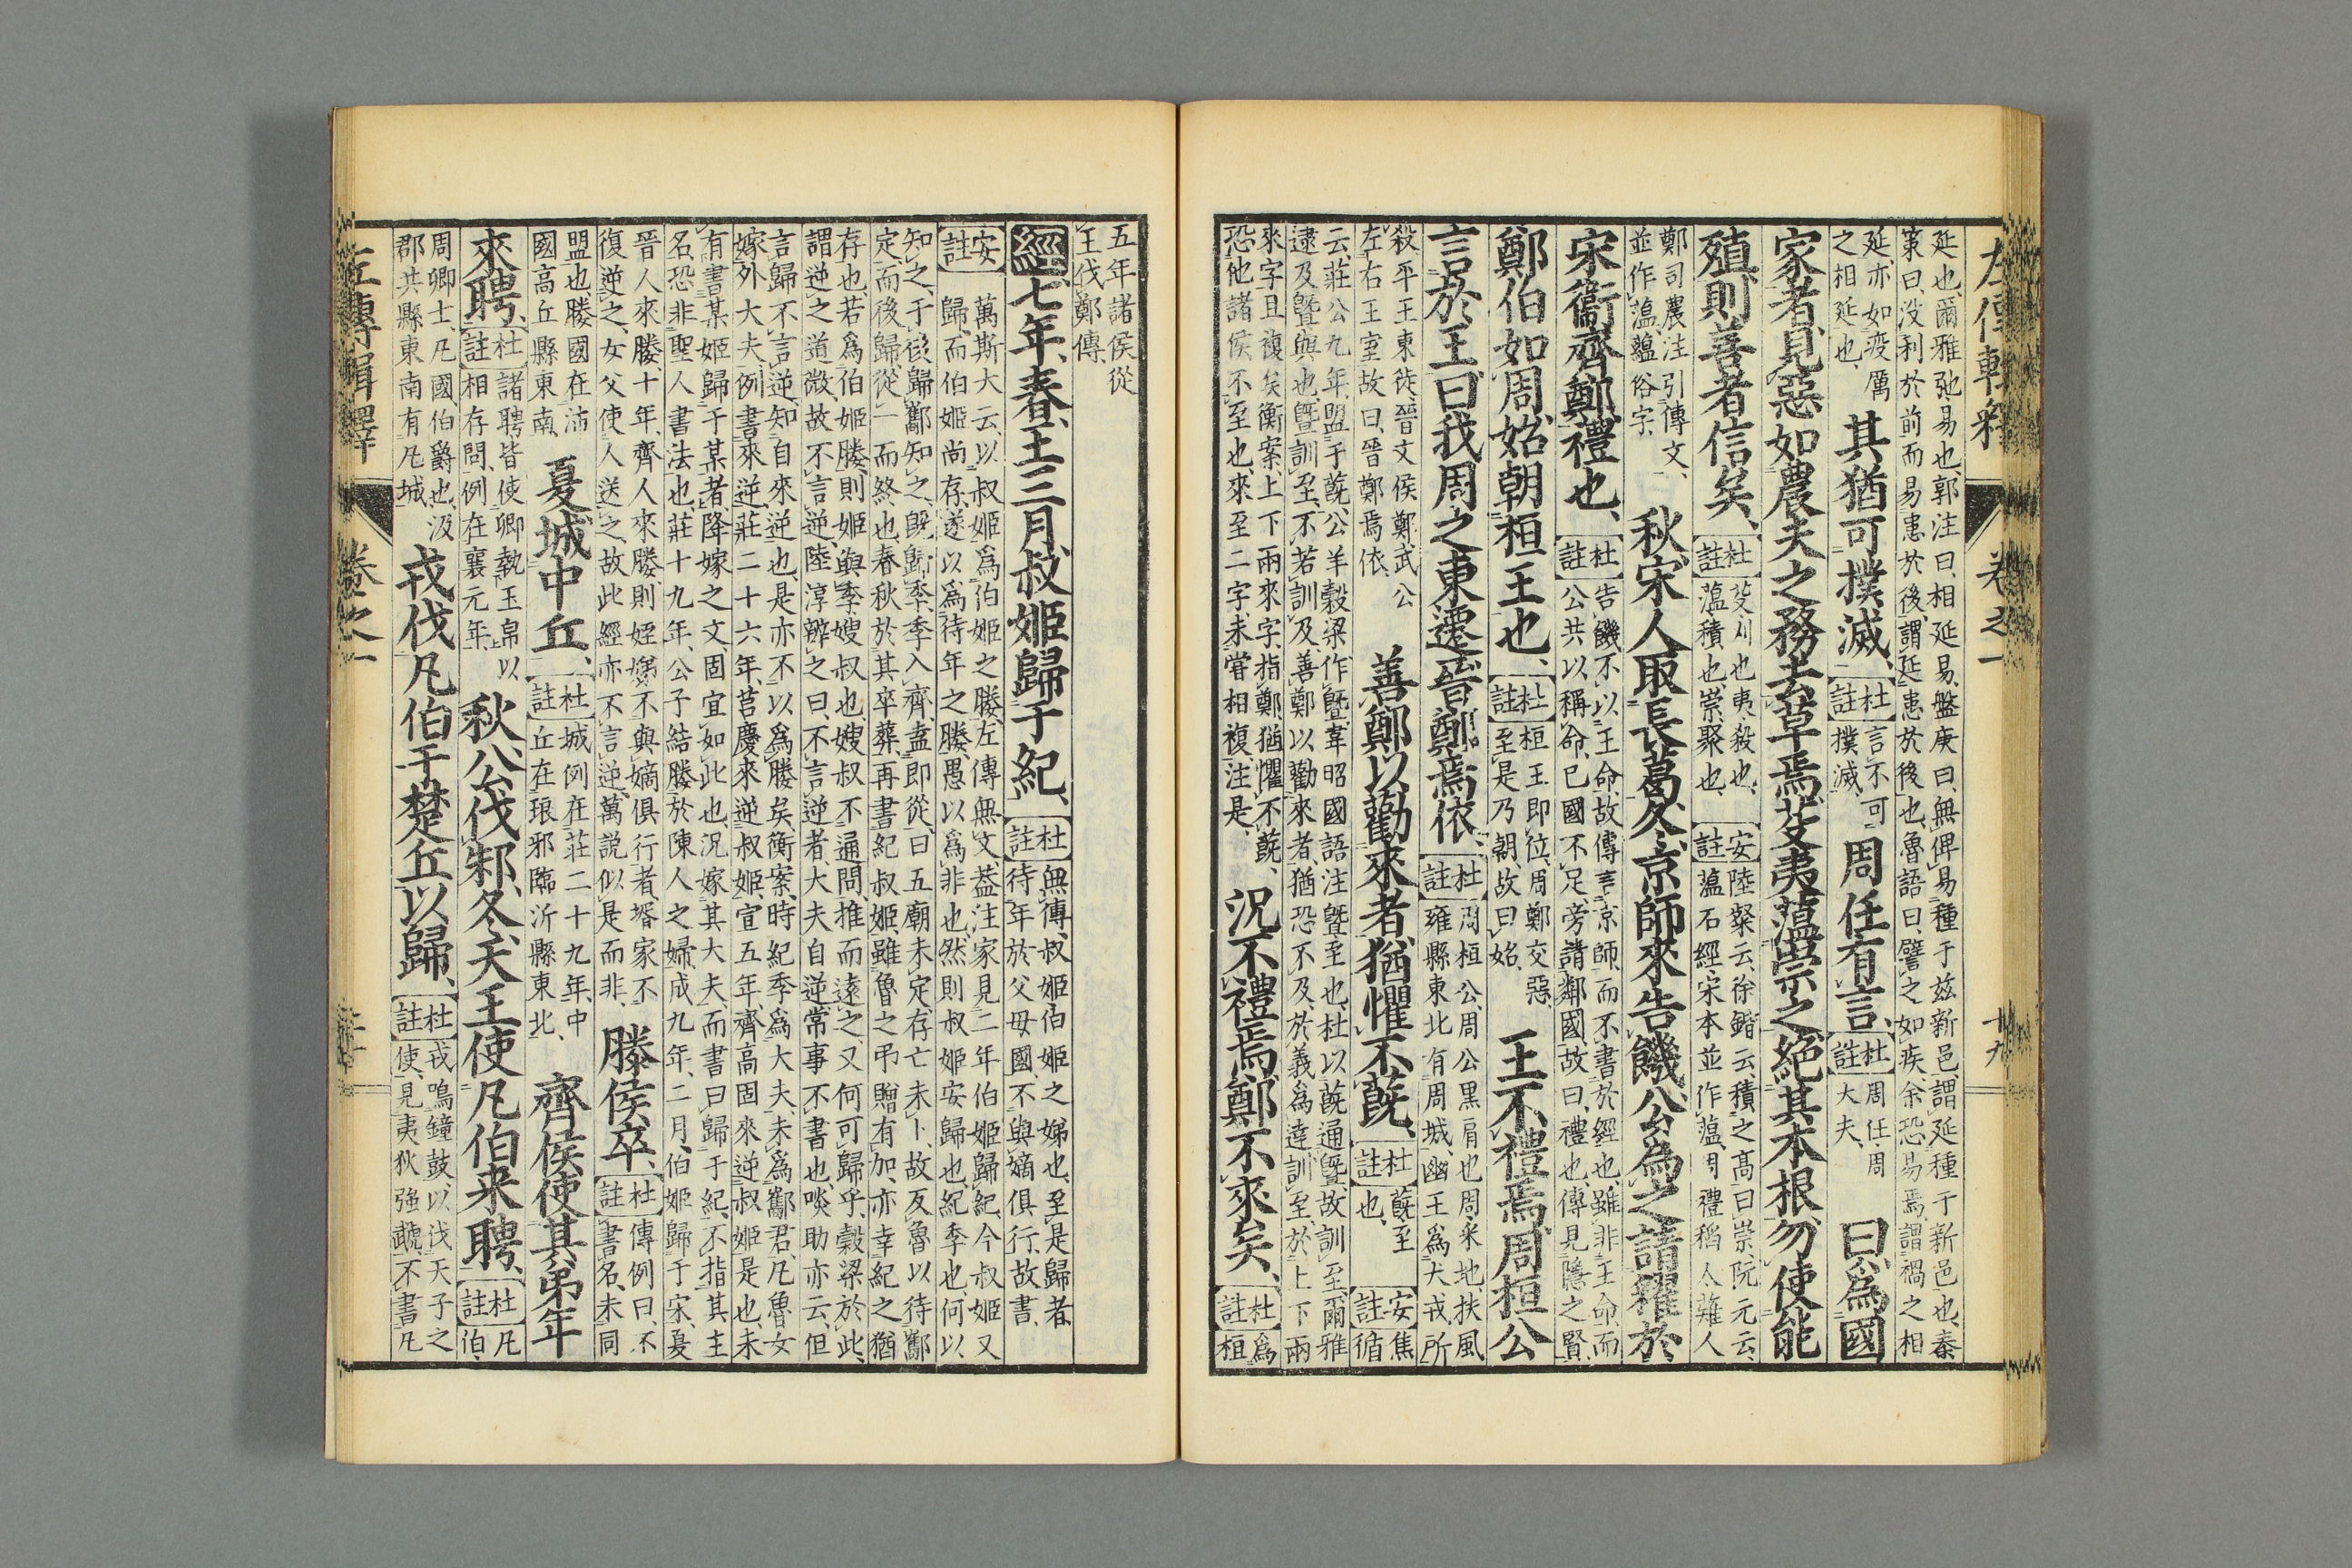 左傳輯釋 卷之一 十九
延也、爾雅弛易也、郭注曰、相延易、盤庚曰、無俾易種于茲新邑、謂延種于新邑也、秦
策曰、沒利於前而易患於後、謂延患於後也、魯語曰、譬之如疾、余恐易焉、謂禍之相
延、亦如疫厲
之相延也、
其猶可撲滅、
杜註 言不可
撲滅、
周任有言、
杜註 周任、周
大夫、
曰、為國
家者、見惡如農夫之務去草焉、芟夷薀崇之、絕其本根、勿使能
殖、則善者信矣、
杜註 芟刈也、夷殺也、
薀積也、崇聚也、
安註 陸粲云、徐鍇云、積之高曰崇、阮元云、
薀石經宋本並作薀、周禮稻人薙人
鄭司農注引傳文、
並作薀、蘊俗字、
秋、宋人取長葛、冬、京師來告饑、公為之請糴於
宋衛齊鄭、禮也、
杜註 告饑不以王命、故傳言京師、而不書於經也、雖非王命、而
公共以稱命、已國不足、旁請鄰國、故曰、禮也、傳見隱之賢、
鄭伯如周、始朝桓王也、
杜註 桓王即位、周鄭交惡、
至是乃朝、故曰始、
王不禮焉、周桓公
言於王曰、我周之東遷、晉鄭焉依、
杜註 周桓公、周公黑肩也、周采地、扶風
雍縣東北有周城、幽王為犬戎所
殺、平王東徙、晉文侯鄭武公
左右王室、故曰、晉鄭焉依、
善鄭以勸來者、猶懼不蔇、
杜註 蔇至
也、
安註 焦
循
云、莊公九年、盟于蔇、公羊穀梁作曁、韋昭國語注、曁至也、杜以蔇通曁、故訓至、爾雅
逮及曁與也、曁訓至、不若訓及、善鄭以勸來者、猶恐不及、於義為達、訓至、於上下兩
來字且複矣、衡案、上下兩來字、指鄭、猶懼不蔇、
恐他諸侯不至也、來至二字、未嘗相複、注是
況不禮焉、鄭不來矣、
杜註 為
桓
五年諸侯從
王伐鄭傳、
經、七年、春、王三月、叔姬歸于紀、
杜註 無傳、叔姬伯姬之娣也、至是歸者、
待年於父母國、不與嫡俱行、故書、
安註 萬斯大云、以叔姬為伯姬之媵、左傳無文、葢注家見二年伯姬歸紀、今叔姬又
歸、而伯姬尚存、遂以為待年之媵、愚以為非也、然則叔姬安歸也、紀季也、何以
知之、于後歸酅知之、既歸季、季入齊、盍即從、曰、五廟未定、存亡未卜、故反魯以待酅
定、而後歸、從一而終也、春秋於其卒葬、再書紀叔姬、雖魯之弔贈有加、亦幸紀之猶
存也、若為伯姬媵、則姬與季嫂叔也、嫂叔不通問、推而遠之、又何可歸乎、穀梁於此、
謂逆之道微、故不言逆、陸淳辨之曰、不言逆者、大夫自逆、常事不書也、啖助亦云、但
言歸、不言逆、知自來逆也、是亦不以為媵矣、衡案、時紀季為大夫、未為酅君、凡魯女
嫁外大夫、例書來逆、莊二十六年、莒慶來逆叔姬、宣五年、齊高固來逆叔姬是也、未
有書某姬歸于某者、降嫁之文、固宜如此也、況嫁其大夫、而書曰歸于紀、不指其主
名、恐非聖人書法也、莊十九年、公子結媵於陳人之婦、成九年、二月、伯姬歸于宋、夏
晉人來媵、十年、齊人來媵、則姪娣不與嫡俱行者、壻家不
復逆之、女父使人送之、故此經亦不言逆、萬說似是而非、
滕侯卒、
杜註 傳例曰、不
書名、未同
盟也、滕國在沛
國高丘縣東南、
夏城中丘、
杜註 城例在莊二十九年、中
丘在琅邪臨沂縣東北、
齊侯使其弟年
來聘、
杜註 諸聘、皆使卿執玉帛以
相存問、例在襄元年、
秋、公伐邾、冬、天王使凡伯來聘、
杜註 凡
伯、
周卿士、凡國、伯爵也、汲
郡共縣東南有凡城、
戎伐凡伯于楚丘以歸、
杜註 戎鳴鐘鼓、以伐天子之
使、見夷狄強虣、不書凡
左傳輯釋 卷之一